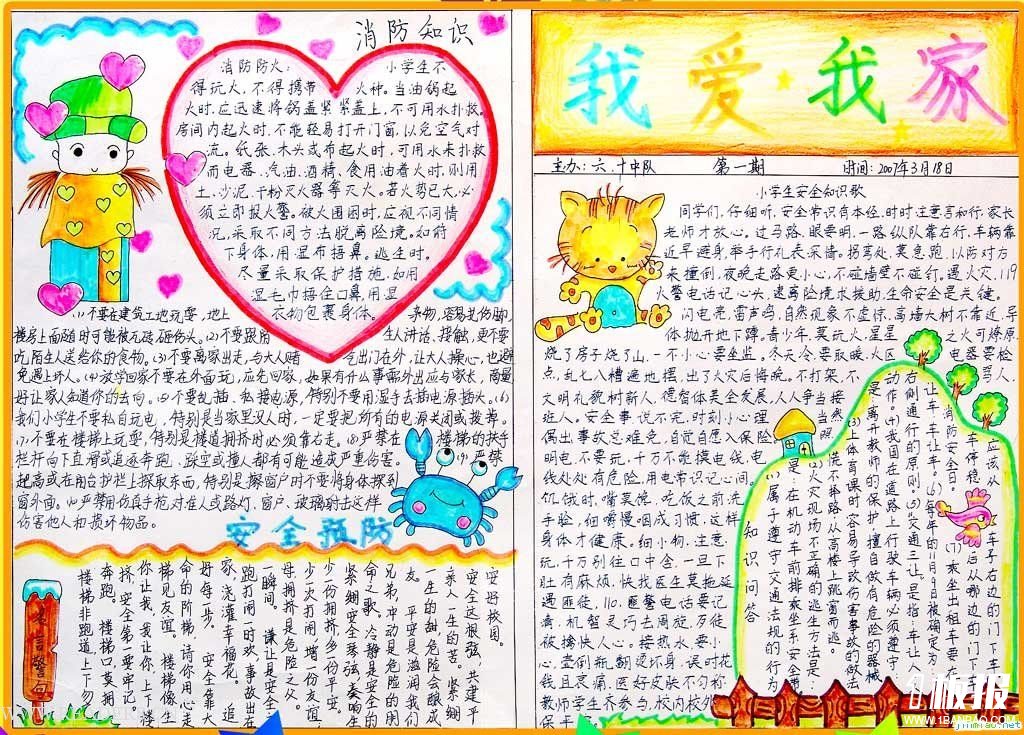 消防知识
消防防火：小学生不
得玩火，不得携带火种。当油锅起
火时，应迅速将锅盖紧紧盖上，不可用水扑救。
房间内起火时，不能轻易打开门窗，以免空气对
流。纸张、木头或布起火时，可用水来扑救
而电器、汽油、酒精、食用油着火时，则用
土、沙泥、干粉灭火器等灭火。若火势已大，必
须立即报火警。被火围困时，应视不同情
况，采取不同方法脱离险境。如俯
下身体，用湿布捂鼻。逃生时，
尽量采取保护措施，如用
湿毛巾捂住口鼻，用湿
衣物包裹身体。
(1)不要在建筑工地玩耍，地上
杂物，容易扎伤脚，
楼房上面随时可能被瓦砖砸伤头。(2)不要跟陌
生人讲话、接触，更不要
吃陌生人送给你的食物。(3)不要离家出走，与大人赌
气出门在外，让大人操心，也避
免遇上坏人。(4)放学回家不要在外面玩，应先回家，如果有什么事需外出应与家长，商量
好让家人知道你的去向。(5)不要乱插、私接电源，特别不要用湿手去插电源插头。(6)
我们小学生不要私自玩电，特别是当家里没人时，一定要把所有的电源关闭或拨弄。
(7)不要在楼梯上玩耍，特别是楼道拥挤时必须靠右走。(8)严禁在
楼梯的扶手
栏杆向下直滑或追逐奔跑、踩空或撞人都有可能造成严重伤害。
(9)严禁
爬高或在阳台护栏上探取东西，特别是擦窗户时不要将身体探到
窗外面。(10)严禁用仿真手枪对准人或路灯、窗户、玻璃射击这样
伤害他人和损坏物品。
安全预防
名言警句
安好校园。
安全这根弦，共建平
亲人一生的苦。紧绷
一生的甜，危险会酿成
平安是滋润我们
友。
兄弟，冲动是危险的朋
命之歌。冷静是安全的
紧绷安全琴弦，奏响生
少一份拥挤，多一份快乐
少一次打闹，增一份友谊
母，拥挤是危险之父。
一瞬间。谦让是安全之
跑打闹一时欢，事故出在
家，浇灌幸福花。追
好每一步。安全靠大
命的阶梯，请你用心走
楼梯见友谊。楼梯像生
你让我，我让你，上下楼
挤，安全第一要牢记。
奔跑。楼梯口，莫拥
楼梯非跑道，上下勿
我爱我家
主办：六.十中队 第一期 时间：2007年3月18日
小学生安全知识歌
同学们，仔细听，安全常识有本经，时时注意言和行，家长
老师才放心。过马路，眼要明，一路纵队靠右行，车辆靠
近早避身，举手行礼表深情。拐弯处，莫急跑，以防对方
来撞倒，夜晚走路更小心，不碰墙壁不碰钉。遇火灾，119
火警电话记心头，逃离险境求援助，生命安全是关键。
闪电亮，雷声鸣，自然现象不虚惊，离墙大树不靠近，导
体抛开地下蹲。青少年，莫玩火，星星之火可燎原，
烧了房子烧了山，一不小心要坐监。冬天冷，要取暖，火区电器要检
点，乱七八糟遍地摆，出了火灾后悔晚。不打架，不骂人，
文明礼貌树新人，德智体美全发展，人人争当
接班人。安全事，说不完，时刻小心理当然，
偶出事故总难免，自觉自愿入保险。
明电，不要玩，十万不能摸电线，电
线处处有危险，用电常识记心间。
饥饿时，嘴莫馋，吃饭之前洗
手脸，细嚼慢咽成习惯，这样
身体才健康。细小物，注意
玩，千万别往口中含，一旦下
肚有麻烦，快找医生莫拖延
遇匪徒，110，匪警电话要记
清，机智灵巧去周旋，歹徒
被擒快人心。接热水，要小
心，壶倒瓶翻烫坏身，误时花
钱且哀痛，医好皮肤不匀称
教师学生齐参与，校内校外
保平
知识问答
(1)属于遵守交通法规的行为
是：在机动车前排乘坐系安全带
(2)火灾现场不正确的逃生方法是：
慌不择路从高楼上跳窗而逃。
(3)上体育课时容易导致伤害事故的做法
是离开教师的保护，擅自做有危险的器械
动作。(4)我国在道路上行驶车辆必须遵守
右侧通行的原则。(5)“交通三让”是指：车让人
让车，车让车。(6)每年的11月9日被确定为
消防安全日。(7)乘坐出租车要在
车停稳后从哪边的门下车
应该从车子右边的门下车
板报
WWW.1BANBAO.COM
jinmiao.net